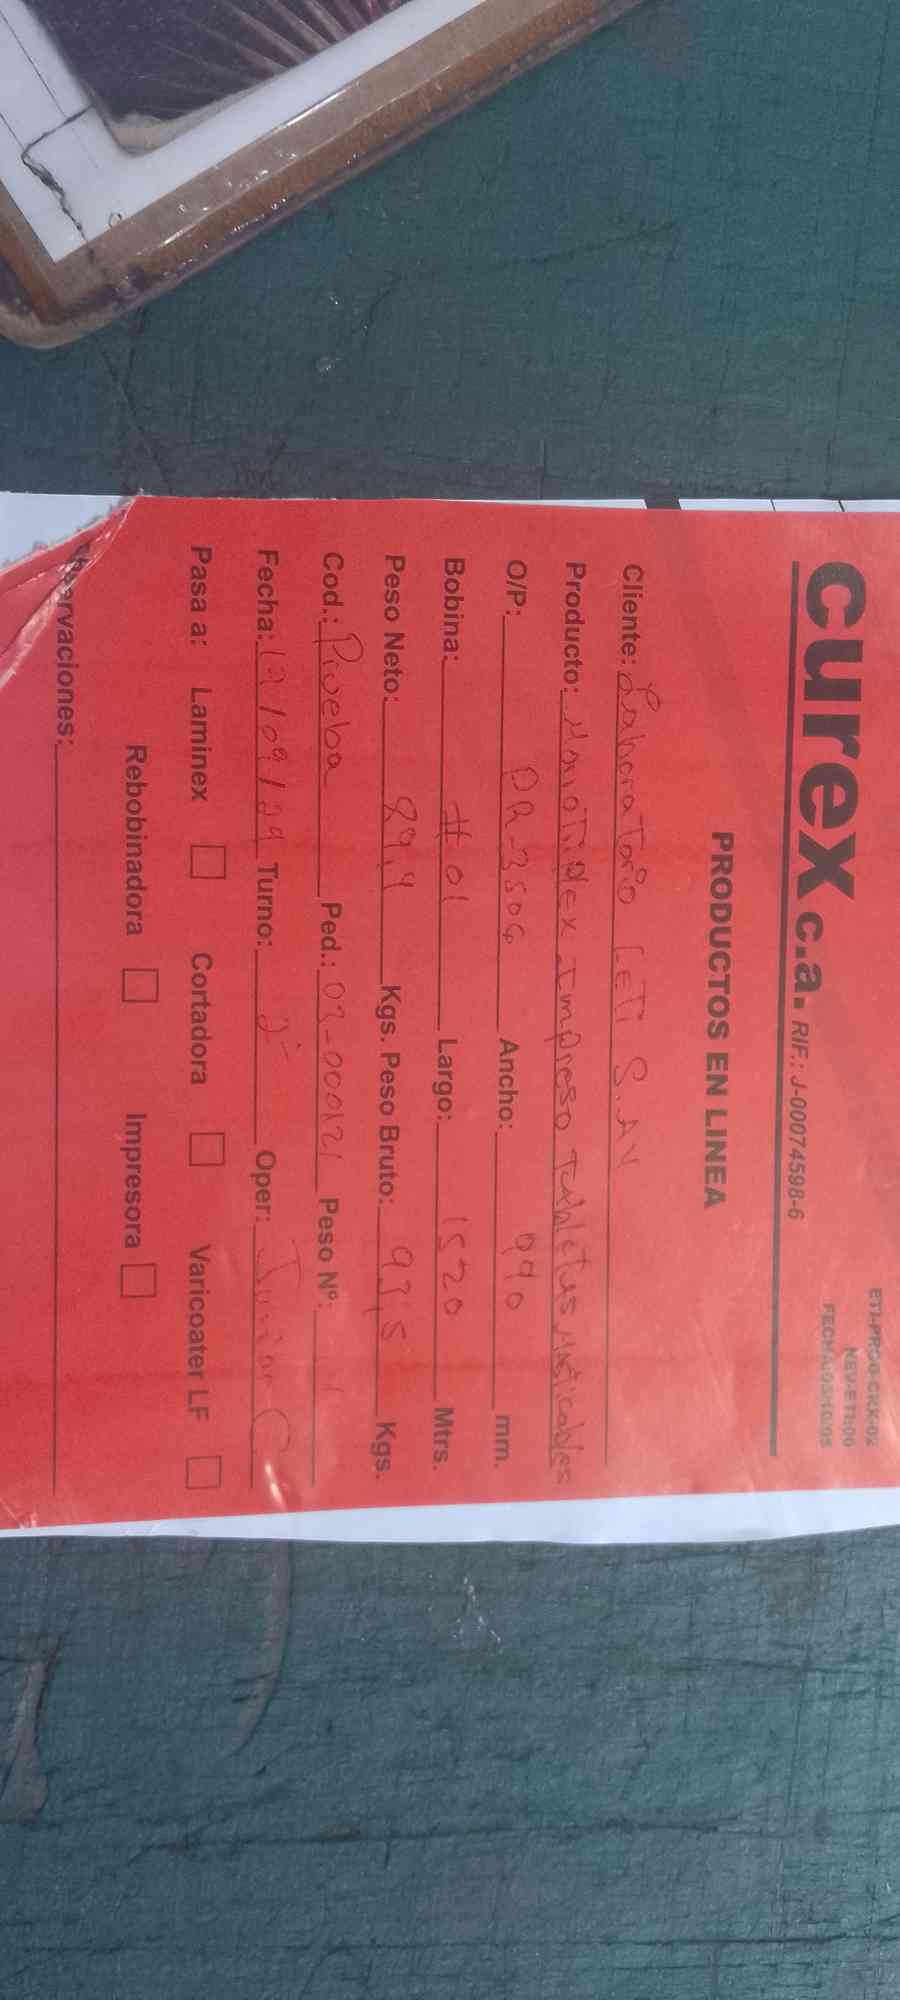 curex c.a. RIF.: J-00074598-6
ETI-PROD-CRX-02
REV-ETI:00
PRODUCTOS EN LINEA
Cliente: Laboratorio LETI S.AV
Producto: MonoTriplex Impreso Tabletas Masticables
O/P: PR-3506 Ancho: 990 mm.
Bobina: #01 Largo: 1520 Mtrs.
Peso Neto: 89,4 Kgs. Peso Bruto: 93,5 Kgs.
Cod.: Prueba Ped.: 03-00121 Peso Nº:
Fecha: 12/09/24 Turno: 2 Oper: Junior C
Pasa a: Laminex Cortadora Varicoater LF
Rebobinadora Impresora
Observaciones: